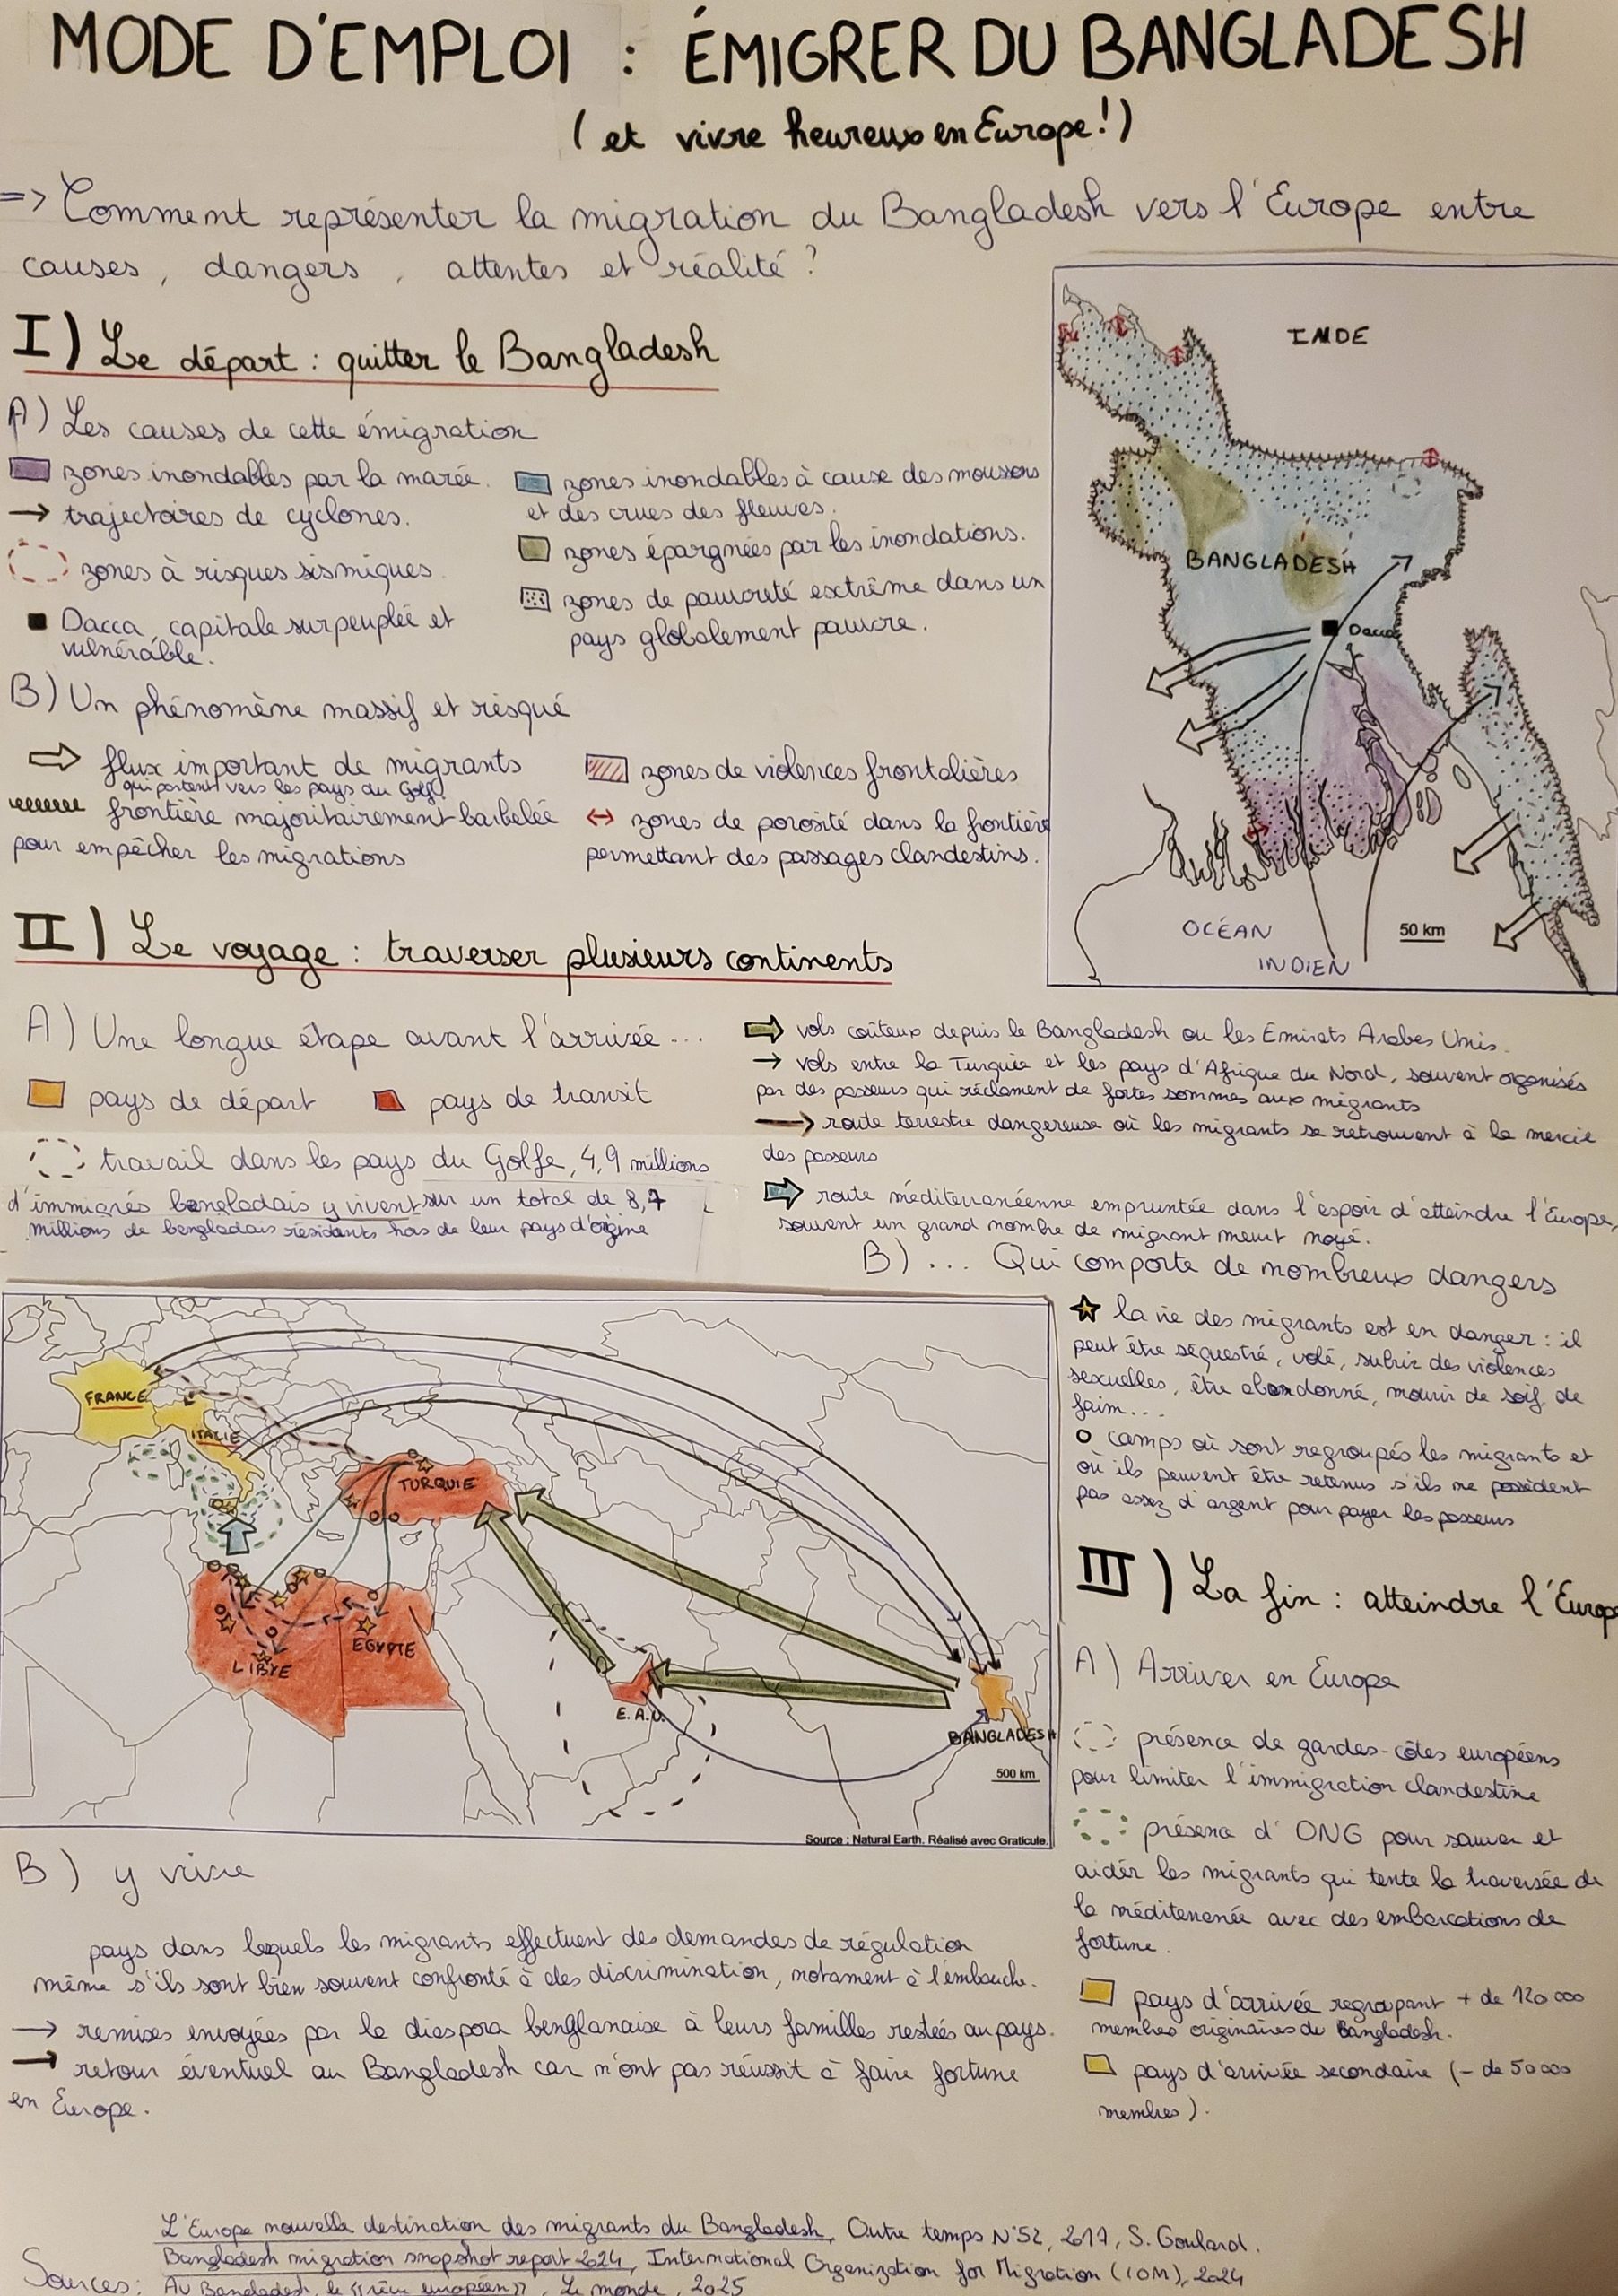 MODE D'EMPLOI : ÉMIGRER DU BANGLADESH
( et vivre heureux en Europe ! )
=> Comment représenter la migration du Bangladesh vers l'Europe entre
causes, dangers, attentes et réalité ?
I) Le départ : quitter le Bangladesh
A) Les causes de cette émigration
zones inondables par la marée.
→ trajectoires de cyclones.
zones à risques sismiques
Dacca, capitale surpeuplée et
vulnérable.
zones inondables à cause des moussons
et des crues des fleuves.
zones épargnées par les inondations.
zones de pauvreté extrême dans un
pays globalement pauvre.
B) Un phénomène massif et risqué
flux important de migrants
qui partent vers les pays du Golf
frontière majoritairement barbelée
pour empêcher les migrations
zones de violences frontalières
↔ zones de porosité dans la frontière
permettant des passages clandestins.
INDE
BANGLADESH
Dacca
OCÉAN
INDIEN
50 km
II) Le voyage : traverser plusieurs continents
A) Une longue étape avant l'arrivée ...
pays de départ
pays de transit
travail dans les pays du Golfe, 4,9 millions
d'immigrés bangladais y vivent sur un total de 8,7
millions de bengladais résidants hors de leur pays d'origine
vols coûteux depuis le Bangladesh ou les Emirats Arabes Unis.
→ vols entre la Turquie et les pays d'Afrique du Nord, souvent organisés
par des passeurs qui réclament de fortes sommes aux migrants
→ route terrestre dangereuse où les migrants se retrouvent à la mercie
des passeurs
route méditerranéenne empruntée dans l'espoir d'atteindre l'Europe,
souvent un grand nombre de migrant meurt noyé.
B) ... Qui comporte de nombreux dangers
la vie des migrants est en danger : il
peut être séquestré, volé, subir des violences
sexuelles, être abandonné, mourir de soif, de
faim...
camps où sont regroupés les migrants et
où ils peuvent être retenus s'ils ne possèdent
pas assez d'argent pour payer les passeurs
FRANCE
ITALIE
TURQUIE
LIBYE
EGYPTE
E.A.U.
BANGLADESH
500 km
Source : Natural Earth. Réalisé avec Graticule.
III) La fin : atteindre l'Europe
A) Arriver en Europe
présence de gardes-côtes européens
pour limiter l'immigration clandestine
présence d'ONG pour sauver et
aider les migrants qui tente la traversée de
la méditerranée avec des embarcations de
fortune.
pays d'arrivée regroupant + de 120 000
membres originaires du Bangladesh.
pays d'arrivée secondaire (- de 50 000
membres).
B) y vivre
pays dans lequels les migrants effectuent des demandes de régulation
même s'ils sont bien souvent confronté à des discrimination, notament à l'embauche.
→ remises envoyées par la diaspora benglanaise à leurs familles restées au pays.
→ retour éventuel au Bangladesh car n'ont pas réussit à faire fortune
en Europe.
L'Europe nouvelle destination des migrants du Bangladesh, Outre temps N°52, 2017, S. Goulard.
Bangladesh migration snapshot report 2024, International Organization for Migration (IOM), 2024
Sources : Au Bangladesh, le "rêve européen", Le monde, 2025